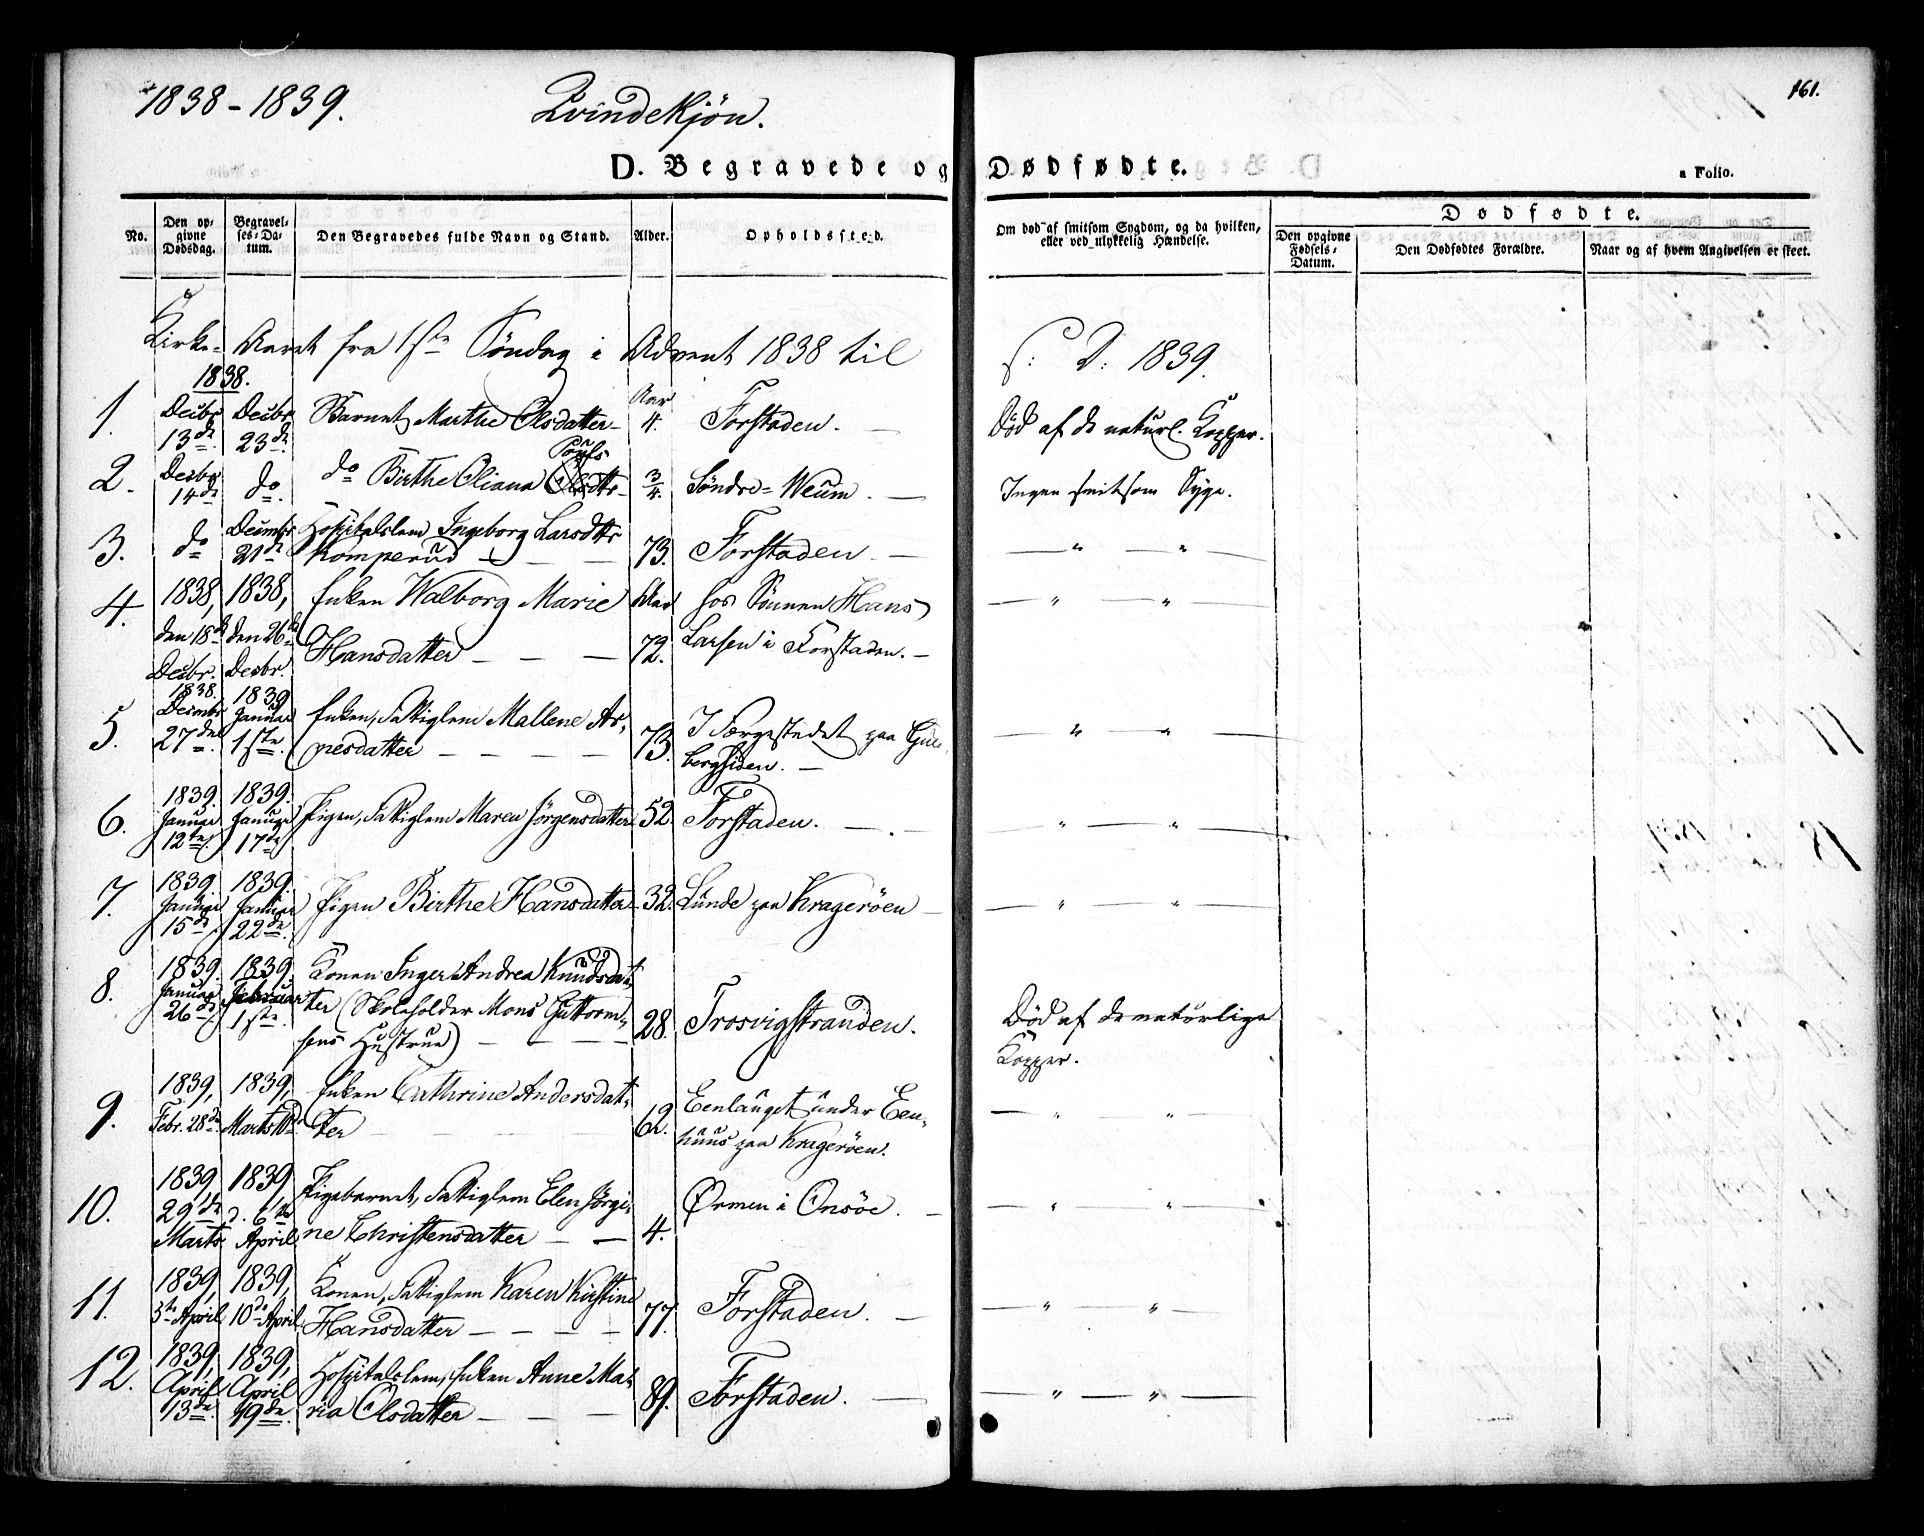 1838-1839. Qvindekjön.
161.
D. Begravede og Dødfødte.
a Folio.
No.
Den opgivne Dødsdag.
Begravelses-Datum.
Den Begravedes fulde Navn og Stand.
Alder.
Opholdssted.
Om død af smitsom Sygdom, og da hvilken, eller ved ulykkelig Hændelse.
Dødfødte.
Den opgivne Fødsels-Datum.
Den Dødfødtes Forældre.
Naar og af hvem Angivelsen er skeet.
Kirke-Aaret fra 1ste Söndag i Advent 1838 til S: D: 1839.
1838.
1. Decbr 13de Decbr 23de Barnet Marthe Olsdatter Aar 4. Forstaden. Död af de naturl. Kopper.
2. Decbr 14de do. do Birthe Oliana Povls dttr 3/4. Söndre-Weum. Ingen smitsom Syge.
3. do Decmbr 21de Hospitalslem Ingeborg Larsdttr Komperud 73. Forstaden. — " — " —
4. 1838, den 18de Decbr. 1838, den 26de Decbr. Enken Walborg Marie Hansdatter 72. hos Sönnen Hans Larsen i Forstaden. — " — " —
5. 1838. Decmbr 27de 1839 Januar 1ste Enken, Fattiglem Mallene Arnesdatter 73. I Færgestedet paa Gulbergsiden. — " — " —
6. 1839. Januar 12te 1839. Januar 17de Pigen, Fattiglem Maren Jörgensdatter 52. Forstaden. — " — " —
7. 1839. Januar 15de 1839. Januar 22de Pigen Birthe Hansdatter 32. Lunde paa Krageröen — " — " —
8. 1839. Januar 26de 1839. Februar 1ste Konen Inger Andrea Knudsdatter (Skoleholder Mons Guttormsens Hustrue) 28. Trosvigstranden. Död af de naturlige Kopper.
9. 1839, Febr. 28de 1839, Marts 10de Enken Cathrine Andersdatter 62. Eenlauget under Eenhuus paa Krageröen. — " — " —
10. 1839 29de Marts 1839 d. 6te April Pigebarnet, Fattiglem Elen Jörgine Christensdatter 4. Ørmen i Onsöe. — " — " —
11. 1839, 3die April 1839, 10de April Konen, Fattiglem Karen Kirstine Hansdatter 77. Forstaden. — " — " —
12. 1839, April 13de 1839, April 19de Hospitalslem, Enken Anne Maria Olsdatter 89. Forstaden. — " — " —